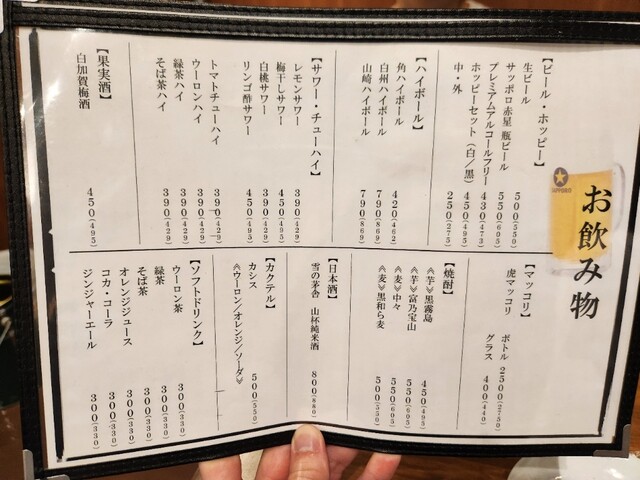 お飲み物
【ビール・ホッピー】
生ビール 500(550)
サッポロ赤星 瓶ビール 550(605)
プレミアムアルコールフリー 430(473)
ホッピーセット(白/黒) 450(495)
中・外 250(275)
【ハイボール】
角ハイボール 420(462)
白州ハイボール 790(869)
山崎ハイボール 790(869)
【サワー・チューハイ】
レモンサワー 390(429)
梅干しサワー 450(495)
白桃サワー 390(429)
リンゴ酢サワー 450(495)
トマトチューハイ 390(429)
ウーロンハイ 390(429)
緑茶ハイ 390(429)
そば茶ハイ 390(429)
【果実酒】
白加賀梅酒 450(495)
【マッコリ】
虎マッコリ ボトル 2500(2750)
グラス 400(445)
【焼酎】
《芋》黒霧島 450(495)
《芋》富乃宝山 550(605)
《麦》中々 550(605)
《麦》黒和ら麦 500(550)
【日本酒】
雪の茅舎 山杯純米酒 800(880)
【カクテル】
カシス 500(550)
《ウーロン/オレンジ/ソーダ》
【ソフトドリンク】
ウーロン茶 300(330)
緑茶 300(330)
そば茶 300(330)
オレンジジュース 300(330)
コカ・コーラ 300(330)
ジンジャーエール 300(330)